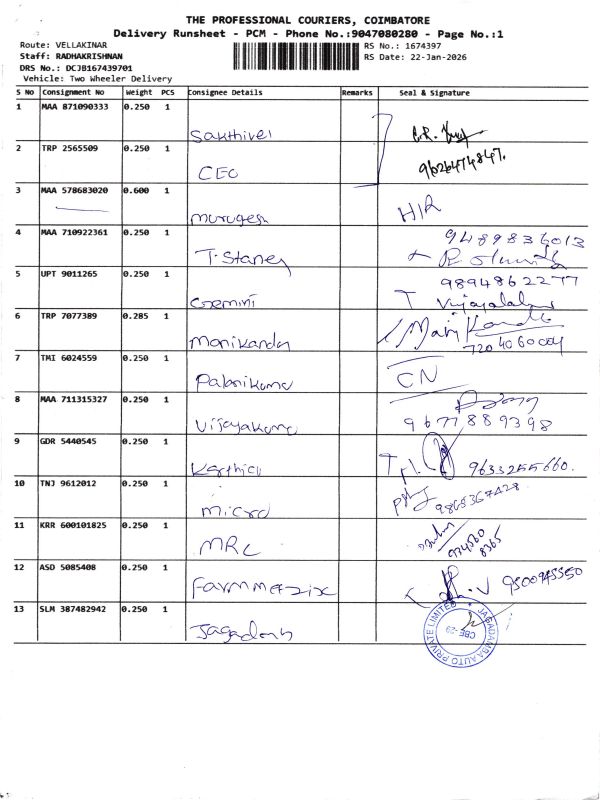 THE PROFESSIONAL COURIERS, COIMBATORE
Delivery Runsheet - PCM - Phone No.:9047080280 - Page No.:1
Route: VELLAKINAR
RS No.: 1674397
Staff: RADHAKRISHNAN
RS Date: 22-Jan-2026
DRS No.: DCJB167439701
Vehicle: Two Wheeler Delivery
S No Consignment No Weight PCS Consignee Details Remarks Seal & Signature
1 MAA 871090333 0.250 1 Sakthivel
2 TRP 2565509 0.250 1 CEO 9626474847.
3 MAA 578683020 0.600 1 murugesh H/R
4 MAA 710922361 0.250 1 T. Staney 9489836013
5 UPT 9011265 0.250 1 Gemini 9894862277
6 TRP 7077389 0.285 1 Manikanda 7204060004
7 TMI 6024559 0.250 1 Palanikuma CN
8 MAA 711315327 0.250 1 Vijayakuma 9677889398
9 GDR 5440545 0.250 1 Karthick 9633255660.
10 TNJ 9612012 0.250 1 micro 9865367428
11 KRR 600101825 0.250 1 MRC
12 ASD 5085408 0.250 1 Farmmatrix 9500945550
13 SLM 387482942 0.250 1 Jagadamb
JAGADAMBA AUTO PRIVATE LIMITED
CBE-29